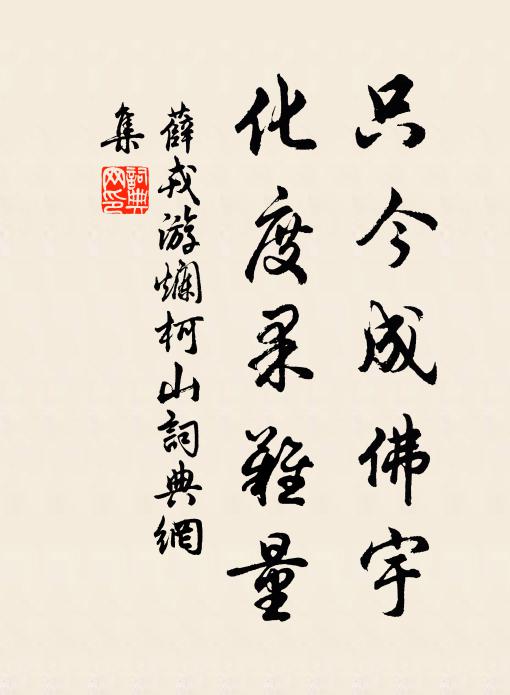 只今成佛宇
化度果難量
薛戎游爛柯山詞典網
集
詞典網印